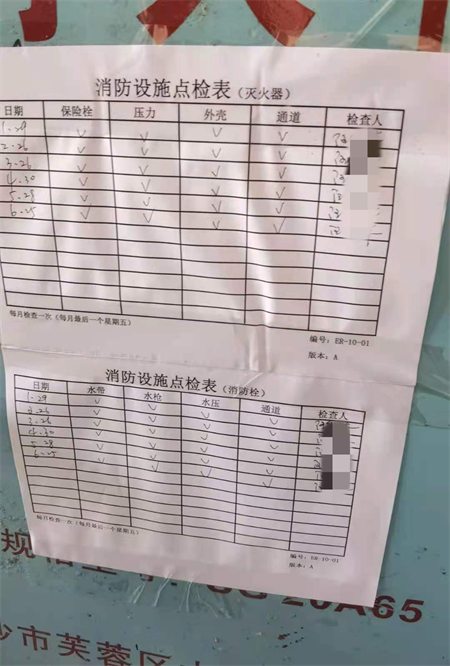 消防设施点检表（灭火器）
日期 保险栓 压力 外壳 通道 检查人
1-29 ✓ ✓ ✓ ✓
2-26 ✓ ✓ ✓ ✓
3-26 ✓ ✓ ✓ ✓
4.30 ✓ ✓ ✓ ✓
5-28 ✓ ✓ ✓ ✓
6-25 ✓ ✓ ✓ ✓
每月检查一次（每月最后一个星期五）
编号：ER-10-01
版本：A
消防设施点检表（消防栓）
日期 水带 水枪 水压 通道 检查人
1-29 ✓ ✓ ✓ ✓
2-26 ✓ ✓ ✓ ✓
3-26 ✓ ✓ ✓ ✓
4.30 ✓ ✓ ✓ ✓
5-28 ✓ ✓ ✓ ✓
6-25 ✓ ✓ ✓ ✓
每月检查一次（每月最后一个星期五）
编号：ER-10-01
版本：A
规格型号 SG20A65
沙市芙蓉区